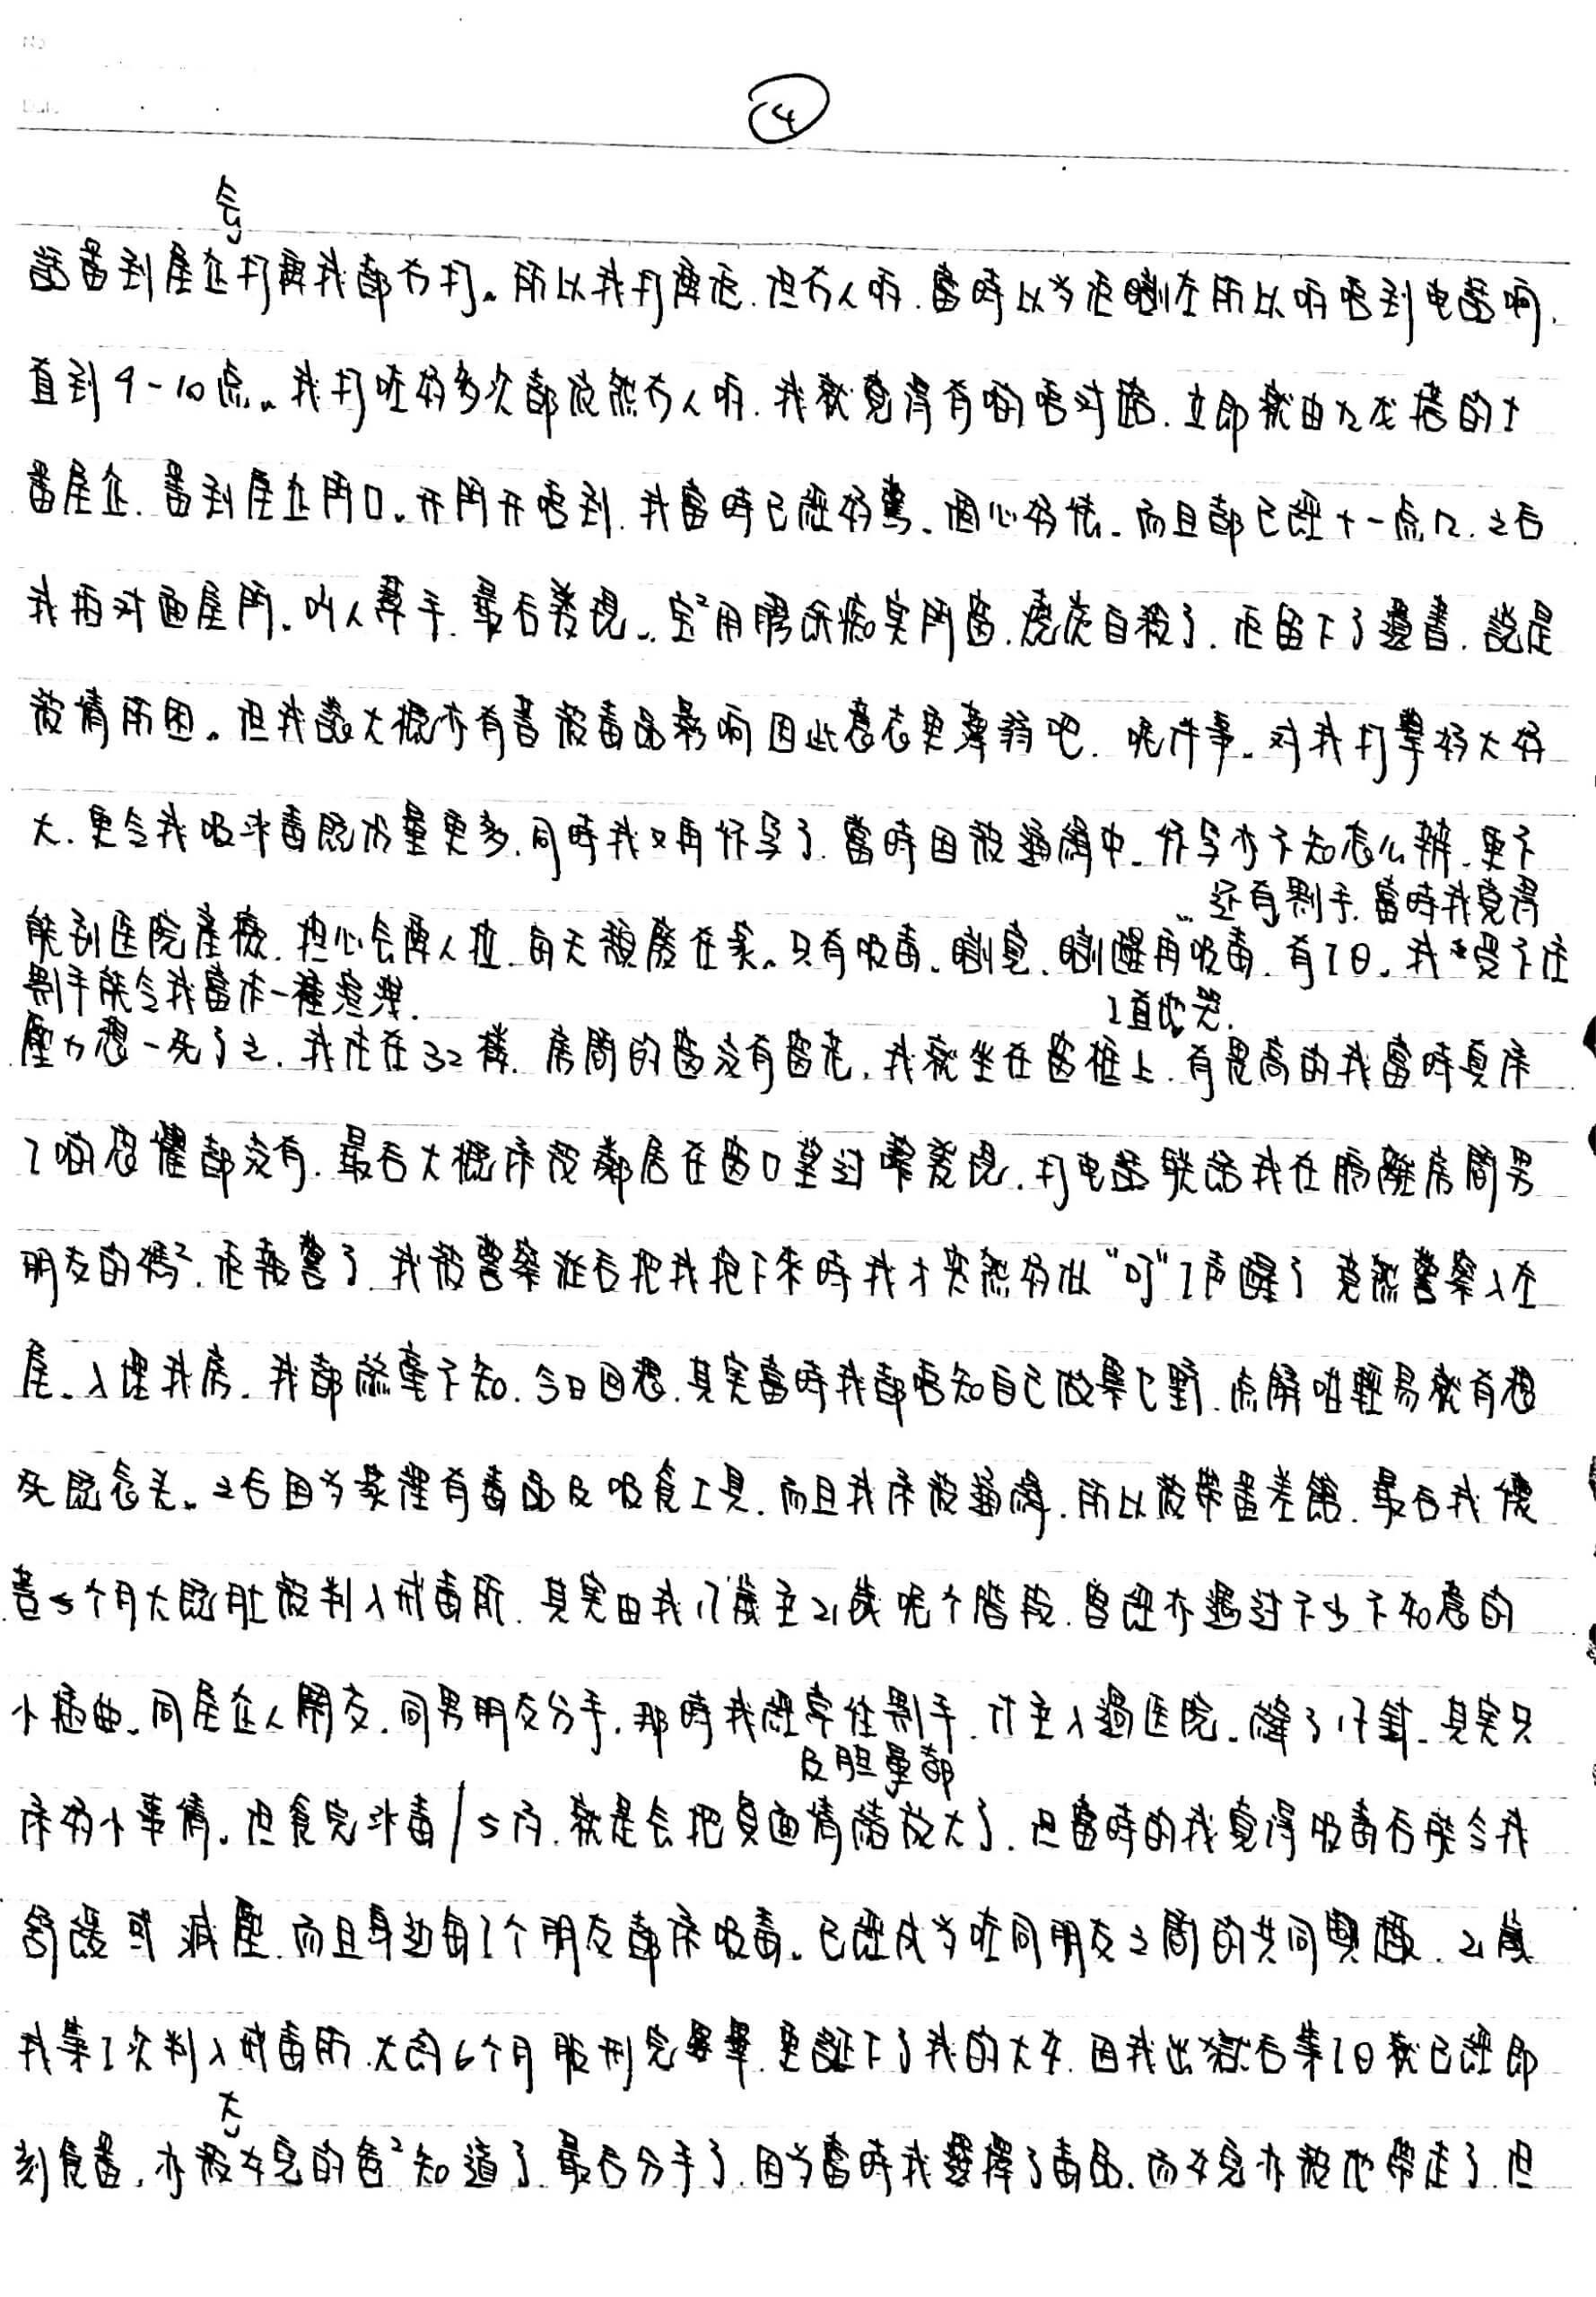 ④
会
話番到屋企打畀我都冇打。所以我打俾佢.但冇人听.當時以为佢瞓左所以听唔到电話响.
直到9-10点。我打咗好多次都依然冇人听.我就覺得有啲唔对路.立即就由九龙搭的士
番屋企.番到屋企門口。开門开唔到.我當時已經好驚。個心好怯。而且都已經十一点几.之后
我拍对面屋門。叫人幫手.最后發現。宝²用膠紙痴实門窗.燒炭自殺了.佢留下了遺書.說是
被情所困。但我諗大概亦有着被毒品影响因此意志更薄弱吧.呢件事。对我打擊好大好
大.更令我吸氷毒既份量更多.同時我又再怀孕了.當時因被通緝中。怀孕亦不知怎么辦.更不
还有𠝹手.當時我覺得
能到医院產檢.担心会俾人拉.每天頹廢在家。只有吸毒。瞓覚、瞓醒再吸毒.有1日。我受不住
𠝹手能令我當作一種宣洩.
1直地哭.
壓力想一死了之.我住在32樓.房間的窗没有窗花.我就坐在窗框上.有畏高的我當時真係
1啲恐懼都没有.最后大概係被鄰居在窗口望过嚟發現.打电話联絡我在隔離房間男
朋友的媽².佢報警了.我被警察从后把我抱下來時我才突然好似"叮"1声醒了.竟然警察入左
屋。入埋我房。我都絲毫不知.今日回想.其実當時我都唔知自己做緊乜野.点解咁輕易就有想
死既念头。之后因为家裡有毒品及吸食工具.而且我係被通緝.所以被帶番差館.最后我懷
着5个月大既肚被判入戒毒所.其実由我17歲至21歲呢个階段.曾經亦遇过不少不如意的
小插曲。同屋企人鬧交.同男朋友分手.那時我經常住𠝹手.甚至入過医院。縫了17針.其実只
及胆量都
係好小事情。但食完氷毒/5仔.就是会把負面情緒放大了.但當時的我覺得吸毒后能令我
舒緩或減壓.而且身边每1个朋友都係吸毒。已經成为咗同朋友之間的共同興趣.21歲
我第1次判入戒毒所.大約6个月服刑完畢.更誕下了我的大女.因我出獄后第1日就已經即
大
刻食番.亦被女兒的爸²知道了.最后分手了.因为當時我選擇了毒品.而女兒亦被他帶走了.但